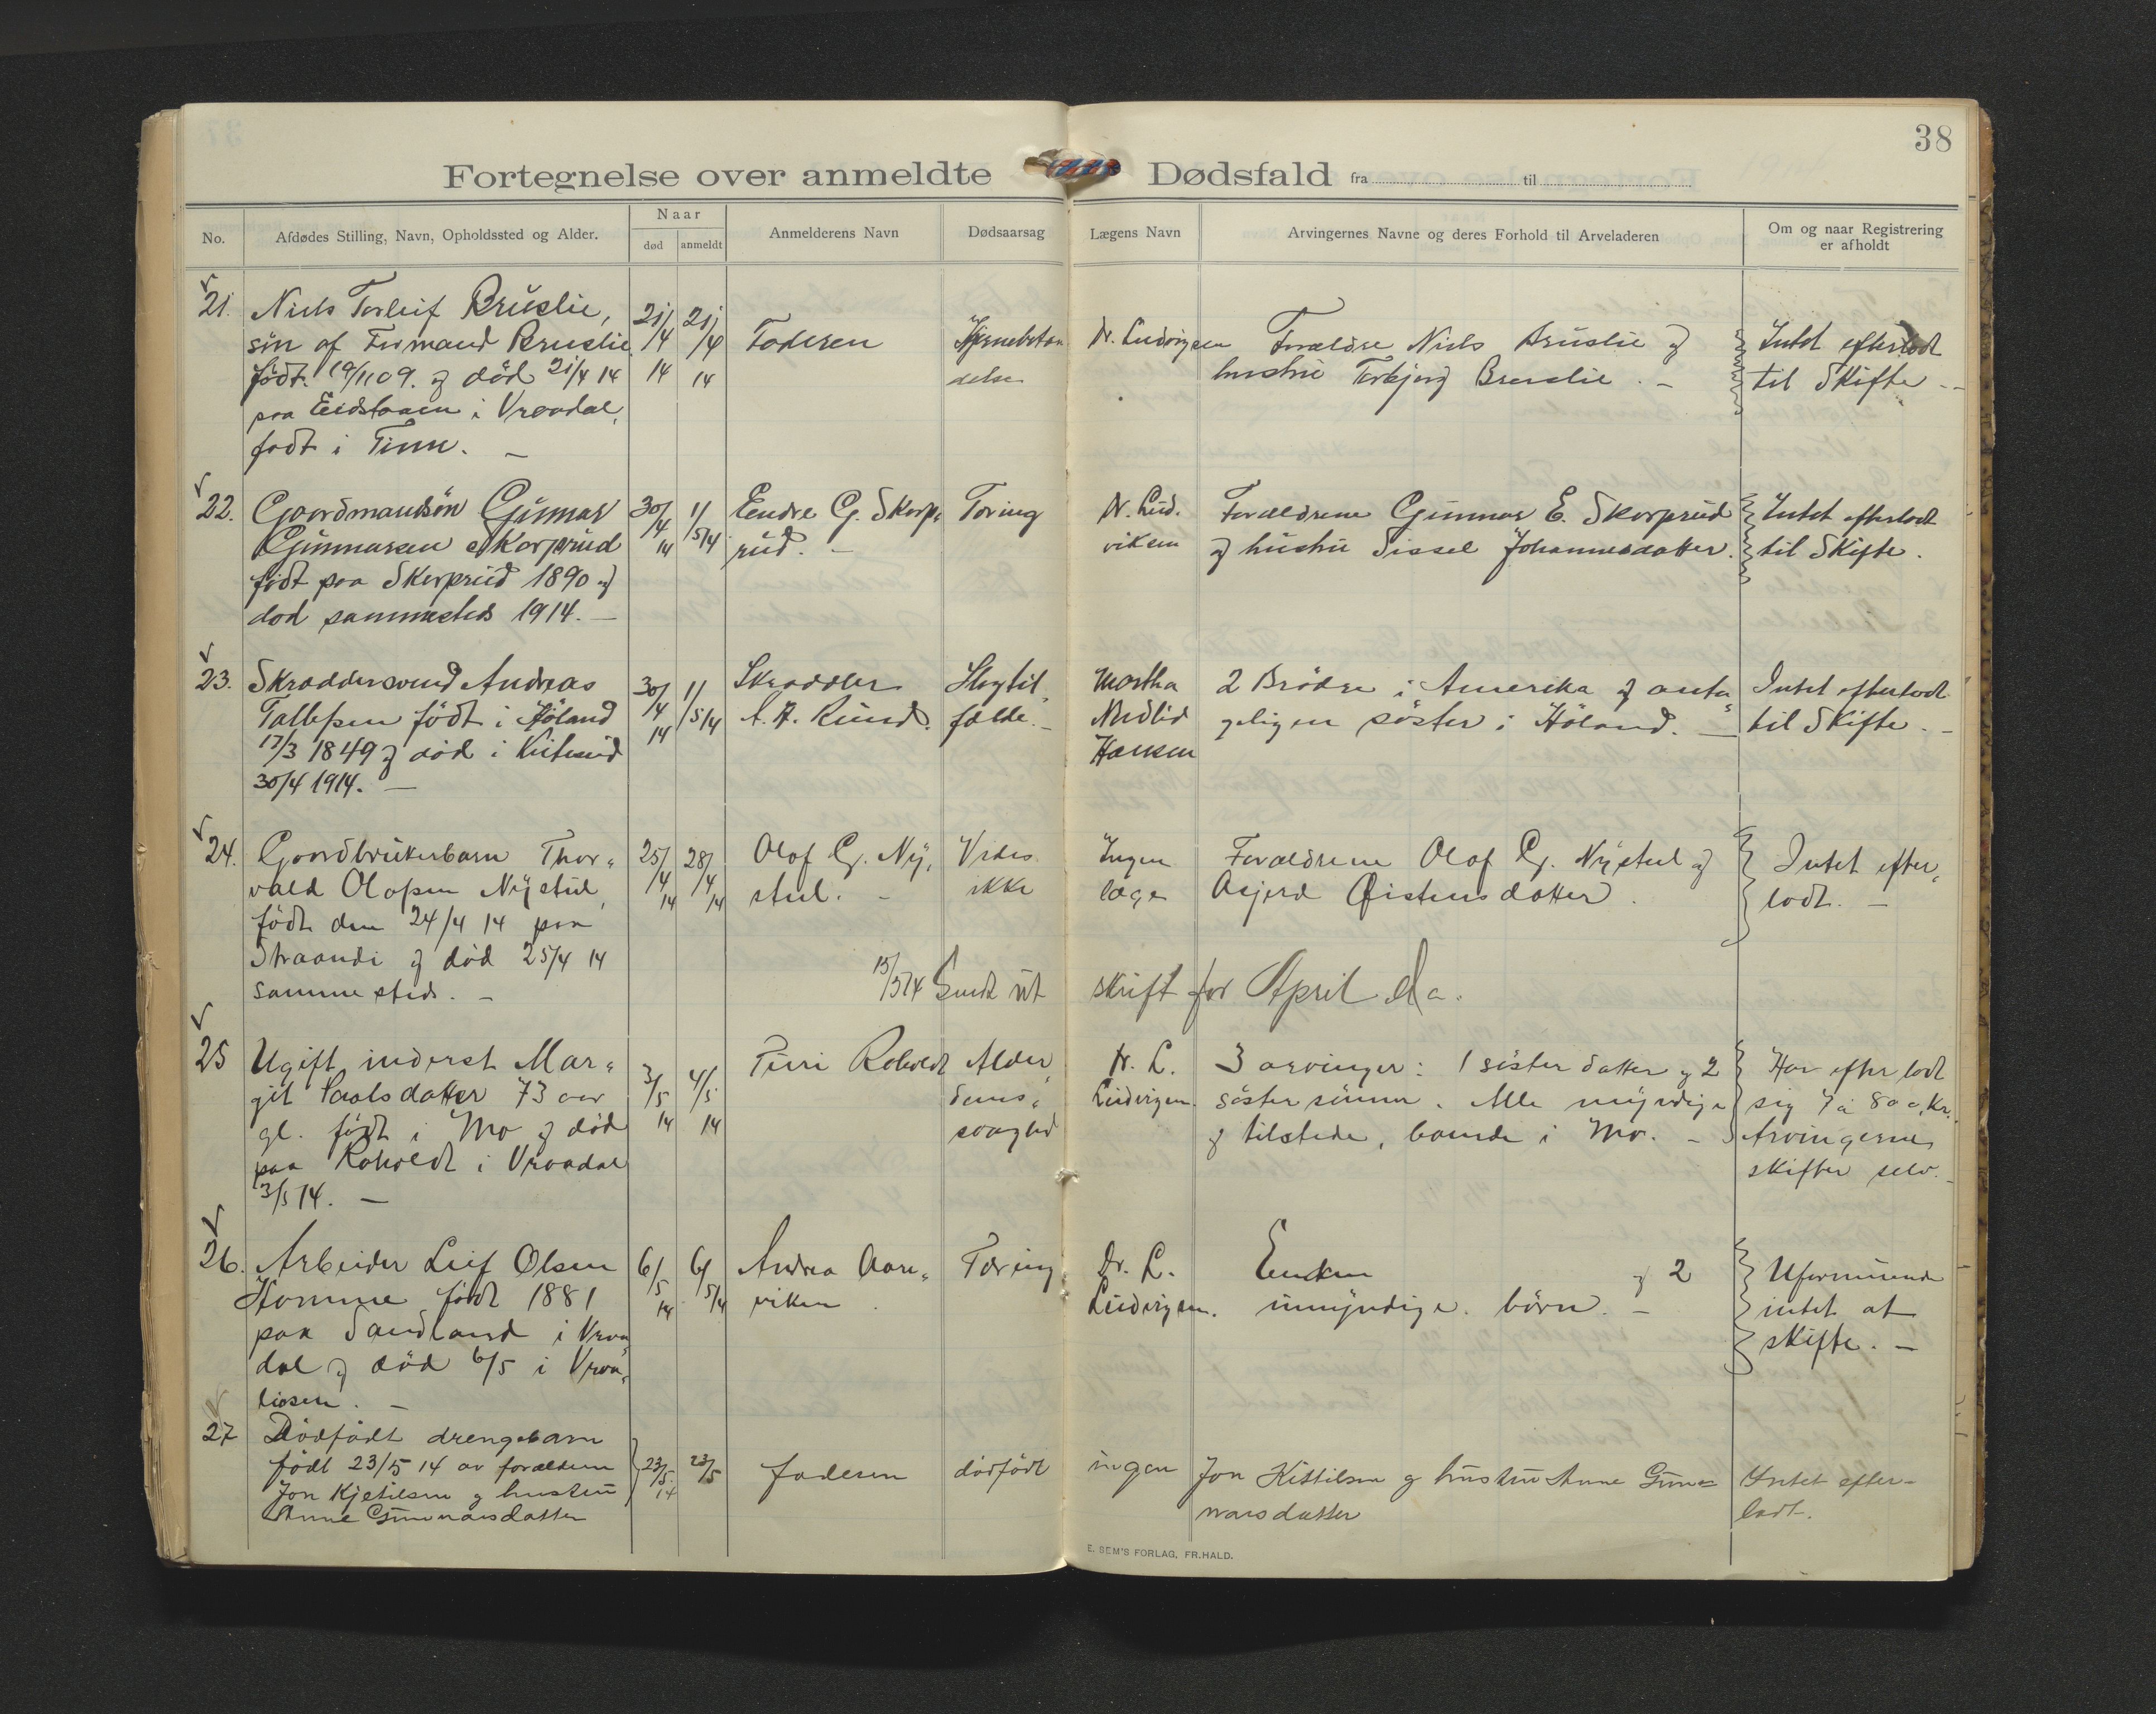 38
Fortegnelse over anmeldte Dødsfald fra til
No.
Afdødes Stilling, Navn, Opholdssted og Alder.
Naar
død
anmeldt
Anmelderens Navn
Dødsaarsag
Lægens Navn
Arvingernes Navne og deres Forhold til Arveladeren
Om og naar Registrering
er afholdt
21.
Niels Torleif Bruslie,
søn af Formand Bruslie
født 19/11 09. og død 21/4 14
paa Eidstaaen i Vraadal,
født i Tinn. –
21/4 14
21/4 14
Faderen
Hjernebetæn
delse
Dr. Ludvigsen
Forældre Niels Bruslie og
hustru Torbjørg Bruslie. –
Intet efterladt
til Skifte –
22.
Gaardmandsøn Gunnar
Gunnarsen Skarprud
født paa Skarprud 1890 og
død sammesteds 1914. –
30/4 14
1/5 14
Endre G. Skarp„
rud. –
Tæring
Dr. Lud.
viksen
Forældrene Gunnar E. Skarprud
og hustru Sissel Johannesdatter.
Intet efterladt
til Skifte.
23.
Skrædersvend Andreas
Tallefsen født i Høland
17/3 1849 og død i
30/4 1914. –
30/4 14
1/5 14
Skrædder
A. A. Rund.
Slagtil„
fælde. –
Martha
Hansen
2 Brødre i Amerika og anta„
geligen søster i Høland. –
Intet efterladt
til Skifte. –
24.
Gaardbrukerbarn Thor„
vald Olafsen Nystul,
født den 24/4 14 paa
Straandi og død 25/4 14
sammesteds. –
25/4 14
28/4 14
Olaf G. Ny„
stul. –
Vides
ikke
Ingen
læge
Forældrene Olaf G. Nystul og
Asjerd Øistensdatter.
Intet efter„
ladt. –
15/5 14 Sendt utskrift for April d.a.
25
Ugift inderst Mar„
git Paalsdatter 73 aar
gl. født i Mo og død
paa Roholdt i Vraadal
3/5 14. –
3/5 14
4/5 14
Turi Roholdt
Alder
doms„
svaghed
Dr. L.
Ludvigsen
3 arvinger: 1 søsterdatter og 2
søstersønner. Alle myndige
og tilstede, boende i Mo. –
Har efterladt
sig 7 a 800, Kr.
Arvingerne
skifter selv. –
26.
Arbeider Leif Olsen
Homme født 1881
paa Sandland i Vraa„
dal og død 6/5 i Vraa„
liosen. –
6/5 14
6/5 14
Andrea Aare„
viken
Tæring
Dr. L.
Ludvigsen.
Enken og 2
umyndige børn. –
Uformuende
intet at
skifte. –
27
Dødfødt drengebarn
født 23/5 14 av forældrene
Jon Kjetilsen og hustru
Anne Gunnarsdatter
23/5 14
23/5
faderen
dødfødt
ingen
Jon Kittilsen og hustru Anne Gun=
narsdatter
Intet efter–
ladt.
E. SEM'S FORLAG, FR.HALD.